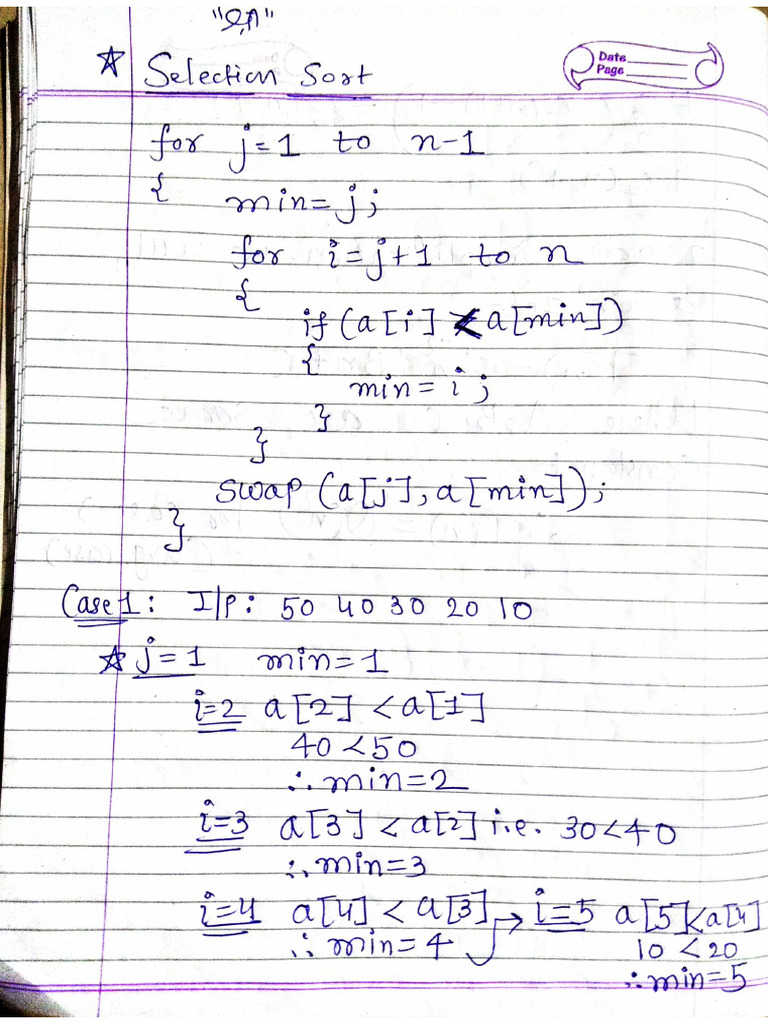 "શ્રી"
☆ Selection Sort
Date
Page
for j=1 to n-1
{ min=j;
for i=j+1 to n
{
if (a[i] < a[min])
{
min=i;
}
}
swap (a[j], a[min]);
}
Case 1: I/P: 50 40 30 20 10
☆ j=1 min=1
i=2 a[2] < a[1]
40<50
∴ min=2
i=3 a[3] < a[2] i.e. 30<40
∴ min=3
i=4 a[4] < a[3] → i=5 a[5]<a[4]
∴ min=4 10 <20
∴ min=5